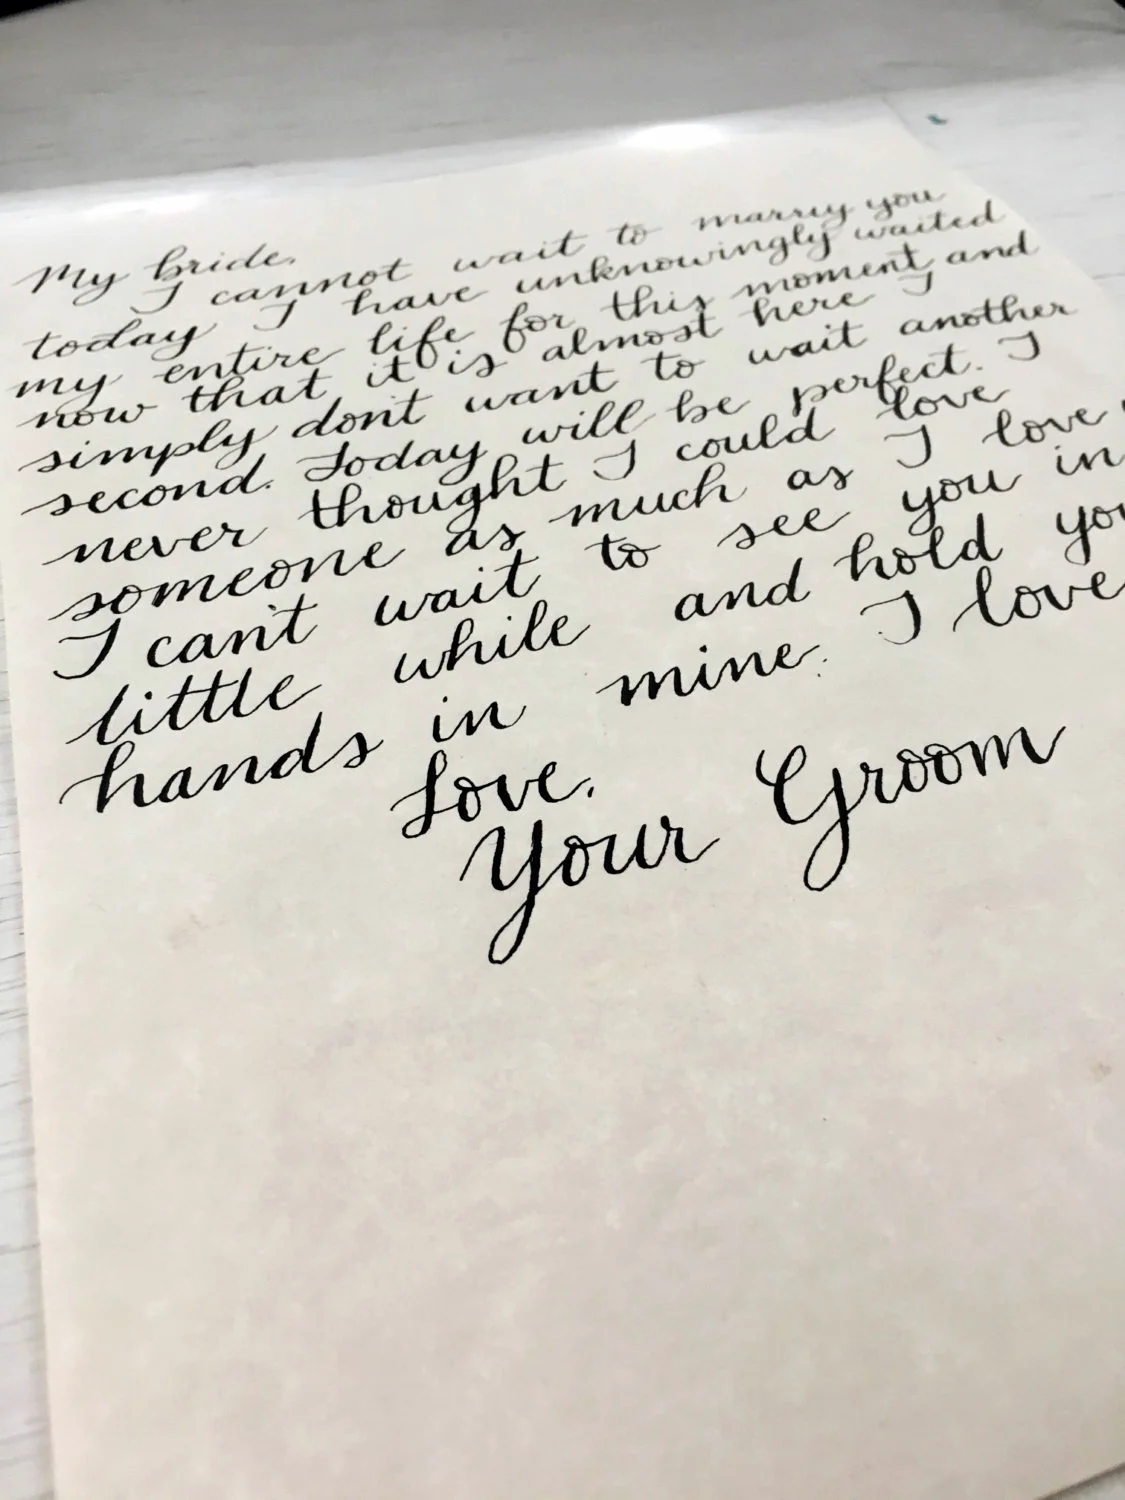 My bride,
I cannot wait to marry you
today I have unknowingly waited
my entire life for this moment and
now that it is almost here I
simply don't want to wait another
second. Today will be perfect. I
never thought I could love
someone as much as I love
I can't wait to see you in
little while and hold
hands in mine. I love
Love,
Your Groom